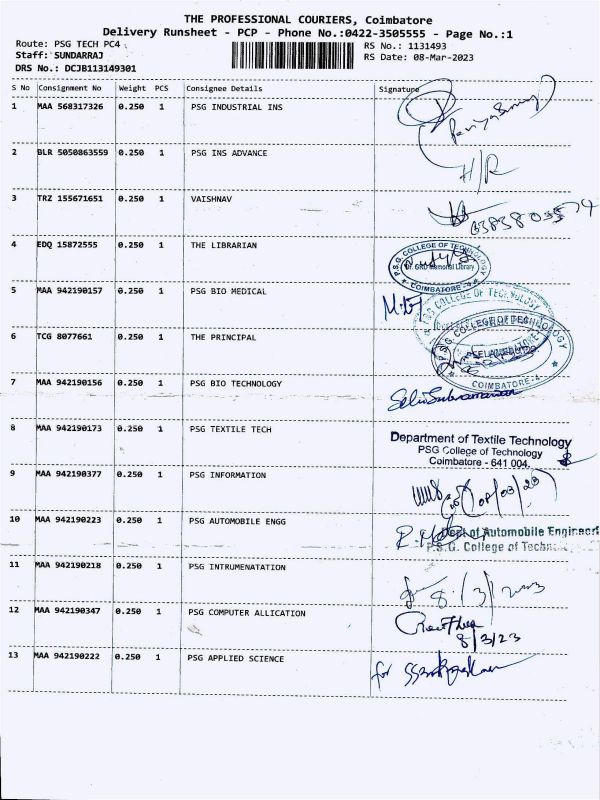 THE PROFESSIONAL COURIERS, Coimbatore
Delivery Runsheet - PCP - Phone No.:0422-3505555 - Page No.:1
Route: PSG TECH PC4
RS No.: 1131493
Staff: SUNDARRAJ
RS Date: 08-Mar-2023
DRS No.: DCJB113149301
S No Consignment No Weight PCS Consignee Details Signature
1 MAA 568317326 0.250 1 PSG INDUSTRIAL INS
2 BLR 5050863559 0.250 1 PSG INS ADVANCE H/R
3 TRZ 155671651 0.250 1 VAISHNAV
4 EDQ 15872555 0.250 1 THE LIBRARIAN
P.S.G. COLLEGE OF TECHNOLOGY
GRD Memorial Library
COIMBATORE-4
5 MAA 942190157 0.250 1 PSG BIO MEDICAL
PSG COLLEGE OF TECHNOLOGY
6 TCG 8077661 0.250 1 THE PRINCIPAL
P.S.G. COLLEGE OF TECHNOLOGY
COIMBATORE-4
7 MAA 942190156 0.250 1 PSG BIO TECHNOLOGY
8 MAA 942190173 0.250 1 PSG TEXTILE TECH
Department of Textile Technology
PSG College of Technology
Coimbatore - 641 004.
9 MAA 942190377 0.250 1 PSG INFORMATION
08/03/23
10 MAA 942190223 0.250 1 PSG AUTOMOBILE ENGG
Dept of Automobile Engineeri
P.S.G. College of Techn
11 MAA 942190218 0.250 1 PSG INTRUMENATATION
8/3/2023
12 MAA 942190347 0.250 1 PSG COMPUTER ALLICATION
8/3/23
13 MAA 942190222 0.250 1 PSG APPLIED SCIENCE
for